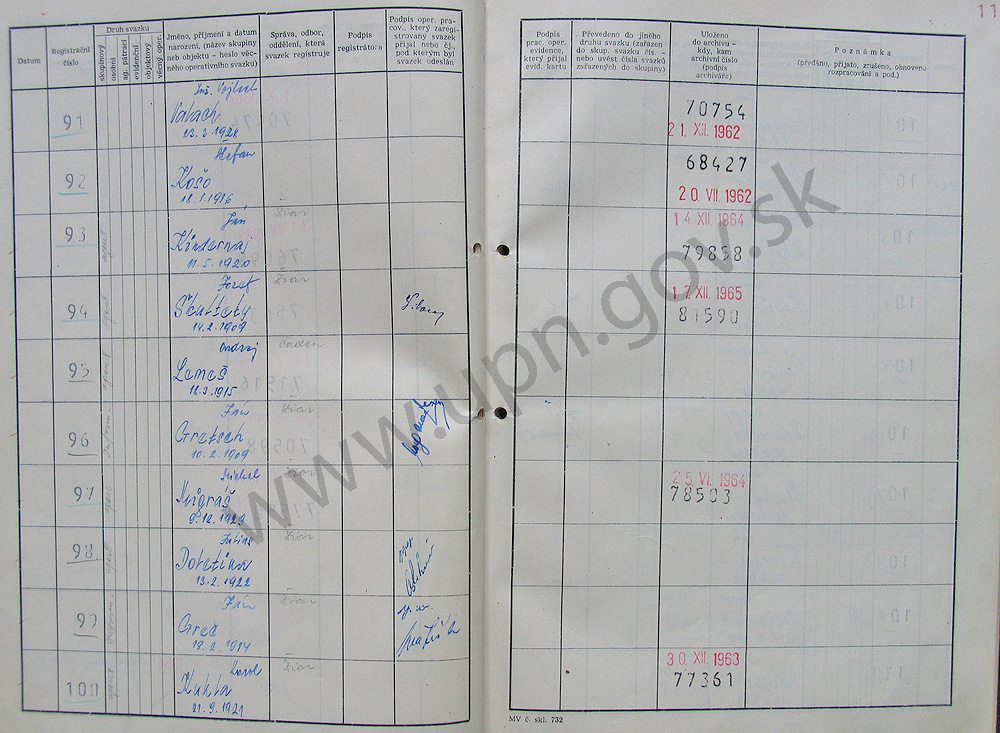 11
Datum
Registrační číslo
Druh svazku
skupinový
osobní
ag. pátrací
evidenční
objektový
věcný oper.
Jméno, příjmení a datum
narození, (název skupiny
neb objektu - heslo věc-
ného operativního svazku)
Správa, odbor,
oddělení, která
svazek registruje
Podpis
registrátora
Podpis oper. pra-
cov., který zaregi-
strovaný svazek
přijal nebo čj.,
pod kterým byl
svazek odeslán
Podpis
prac. oper.
evidence,
který přijal
evid. kartu
Převedeno do jiného
druhu svazku (zařazen
do skup. svazku čís. -
nebo uvést čísla svazků
zařazených do skupiny)
Uloženo
do archivu -
kdy, kam,
archivní číslo
(podpis
archiváře)
Poznámka
(předáno, přijato, zrušeno, obnoveno
rozpracování a pod.)
91
Valach
23. 3. 1928
70754
21. XII. 1962
92
Štefan
Košo
18. 1. 1916
68427
20 VII. 1962
93
Ján
Žiar
Kindernaj
11. 5. 1920
14. XII. 1964
79858
94
Jozef
Žiar
Škultéty
14. 2. 1909
17. XII. 1965
81590
95
Ondrej
Lemeš
18. 3. 1915
96
Ján
Žiar
Gretsch
10. 2. 1909
97
Michal
Žiar
Migraš
9. 12. 1929
25. VI. 1964
78503
98
Žiar
Doletina
13. 2. 1922
99
Ján
Žiar
Greč
19. 2. 1914
100
Karol
Žiar
Kukla
21. 9. 1921
30 XII. 1963
77361
MV č. skl. 732
www.upn.gov.sk